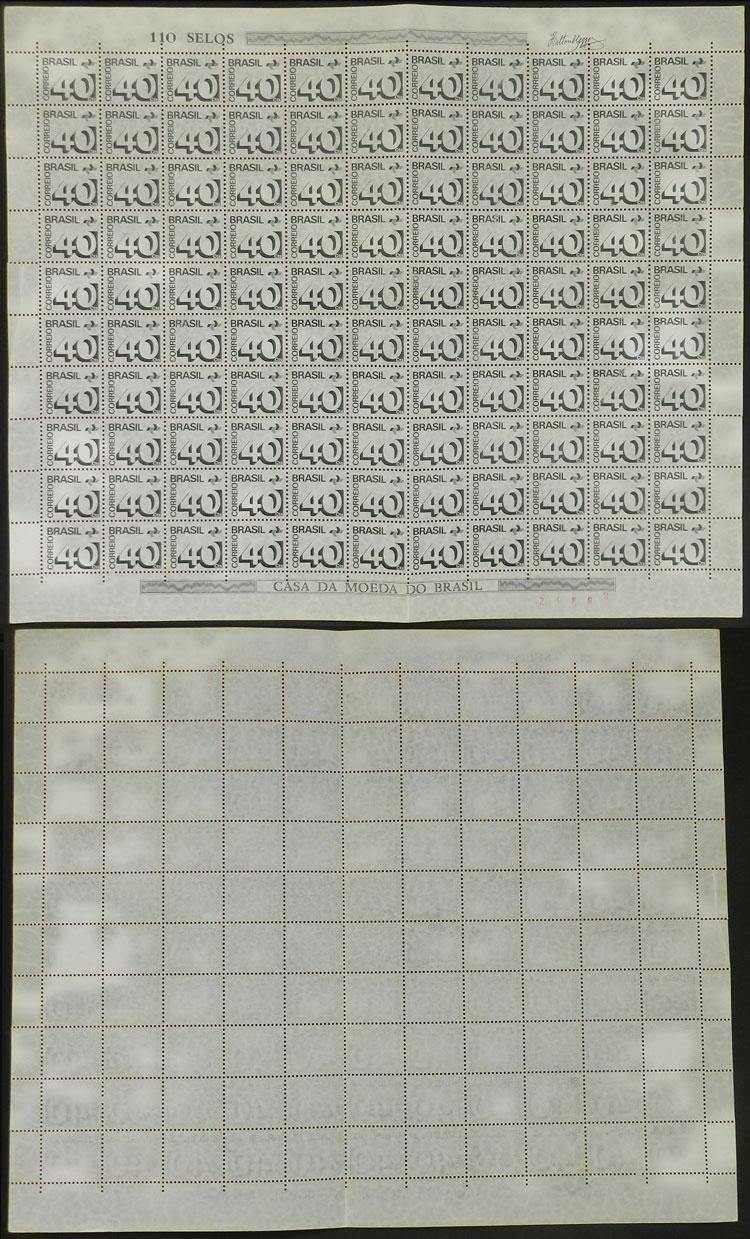 110 SELOS
BRASIL BRASIL BRASIL BRASIL BRASIL BRASIL BRASIL BRASIL BRASIL BRASIL BRASIL
CORREIO 40 CORREIO 40 CORREIO 40 CORREIO 40 CORREIO 40 CORREIO 40 CORREIO 40 CORREIO 40 CORREIO 40 CORREIO 40 CORREIO 40
BRASIL BRASIL BRASIL BRASIL BRASIL BRASIL BRASIL BRASIL BRASIL BRASIL BRASIL
CORREIO 40 CORREIO 40 CORREIO 40 CORREIO 40 CORREIO 40 CORREIO 40 CORREIO 40 CORREIO 40 CORREIO 40 CORREIO 40 CORREIO 40
BRASIL BRASIL BRASIL BRASIL BRASIL BRASIL BRASIL BRASIL BRASIL BRASIL BRASIL
CORREIO 40 CORREIO 40 CORREIO 40 CORREIO 40 CORREIO 40 CORREIO 40 CORREIO 40 CORREIO 40 CORREIO 40 CORREIO 40 CORREIO 40
BRASIL BRASIL BRASIL BRASIL BRASIL BRASIL BRASIL BRASIL BRASIL BRASIL BRASIL
CORREIO 40 CORREIO 40 CORREIO 40 CORREIO 40 CORREIO 40 CORREIO 40 CORREIO 40 CORREIO 40 CORREIO 40 CORREIO 40 CORREIO 40
BRASIL BRASIL BRASIL BRASIL BRASIL BRASIL BRASIL BRASIL BRASIL BRASIL BRASIL
CORREIO 40 CORREIO 40 CORREIO 40 CORREIO 40 CORREIO 40 CORREIO 40 CORREIO 40 CORREIO 40 CORREIO 40 CORREIO 40 CORREIO 40
BRASIL BRASIL BRASIL BRASIL BRASIL BRASIL BRASIL BRASIL BRASIL BRASIL BRASIL
CORREIO 40 CORREIO 40 CORREIO 40 CORREIO 40 CORREIO 40 CORREIO 40 CORREIO 40 CORREIO 40 CORREIO 40 CORREIO 40 CORREIO 40
BRASIL BRASIL BRASIL BRASIL BRASIL BRASIL BRASIL BRASIL BRASIL BRASIL BRASIL
CORREIO 40 CORREIO 40 CORREIO 40 CORREIO 40 CORREIO 40 CORREIO 40 CORREIO 40 CORREIO 40 CORREIO 40 CORREIO 40 CORREIO 40
BRASIL BRASIL BRASIL BRASIL BRASIL BRASIL BRASIL BRASIL BRASIL BRASIL BRASIL
CORREIO 40 CORREIO 40 CORREIO 40 CORREIO 40 CORREIO 40 CORREIO 40 CORREIO 40 CORREIO 40 CORREIO 40 CORREIO 40 CORREIO 40
BRASIL BRASIL BRASIL BRASIL BRASIL BRASIL BRASIL BRASIL BRASIL BRASIL BRASIL
CORREIO 40 CORREIO 40 CORREIO 40 CORREIO 40 CORREIO 40 CORREIO 40 CORREIO 40 CORREIO 40 CORREIO 40 CORREIO 40 CORREIO 40
BRASIL BRASIL BRASIL BRASIL BRASIL BRASIL BRASIL BRASIL BRASIL BRASIL BRASIL
CORREIO 40 CORREIO 40 CORREIO 40 CORREIO 40 CORREIO 40 CORREIO 40 CORREIO 40 CORREIO 40 CORREIO 40 CORREIO 40 CORREIO 40
CASA DA MOEDA DO BRASIL